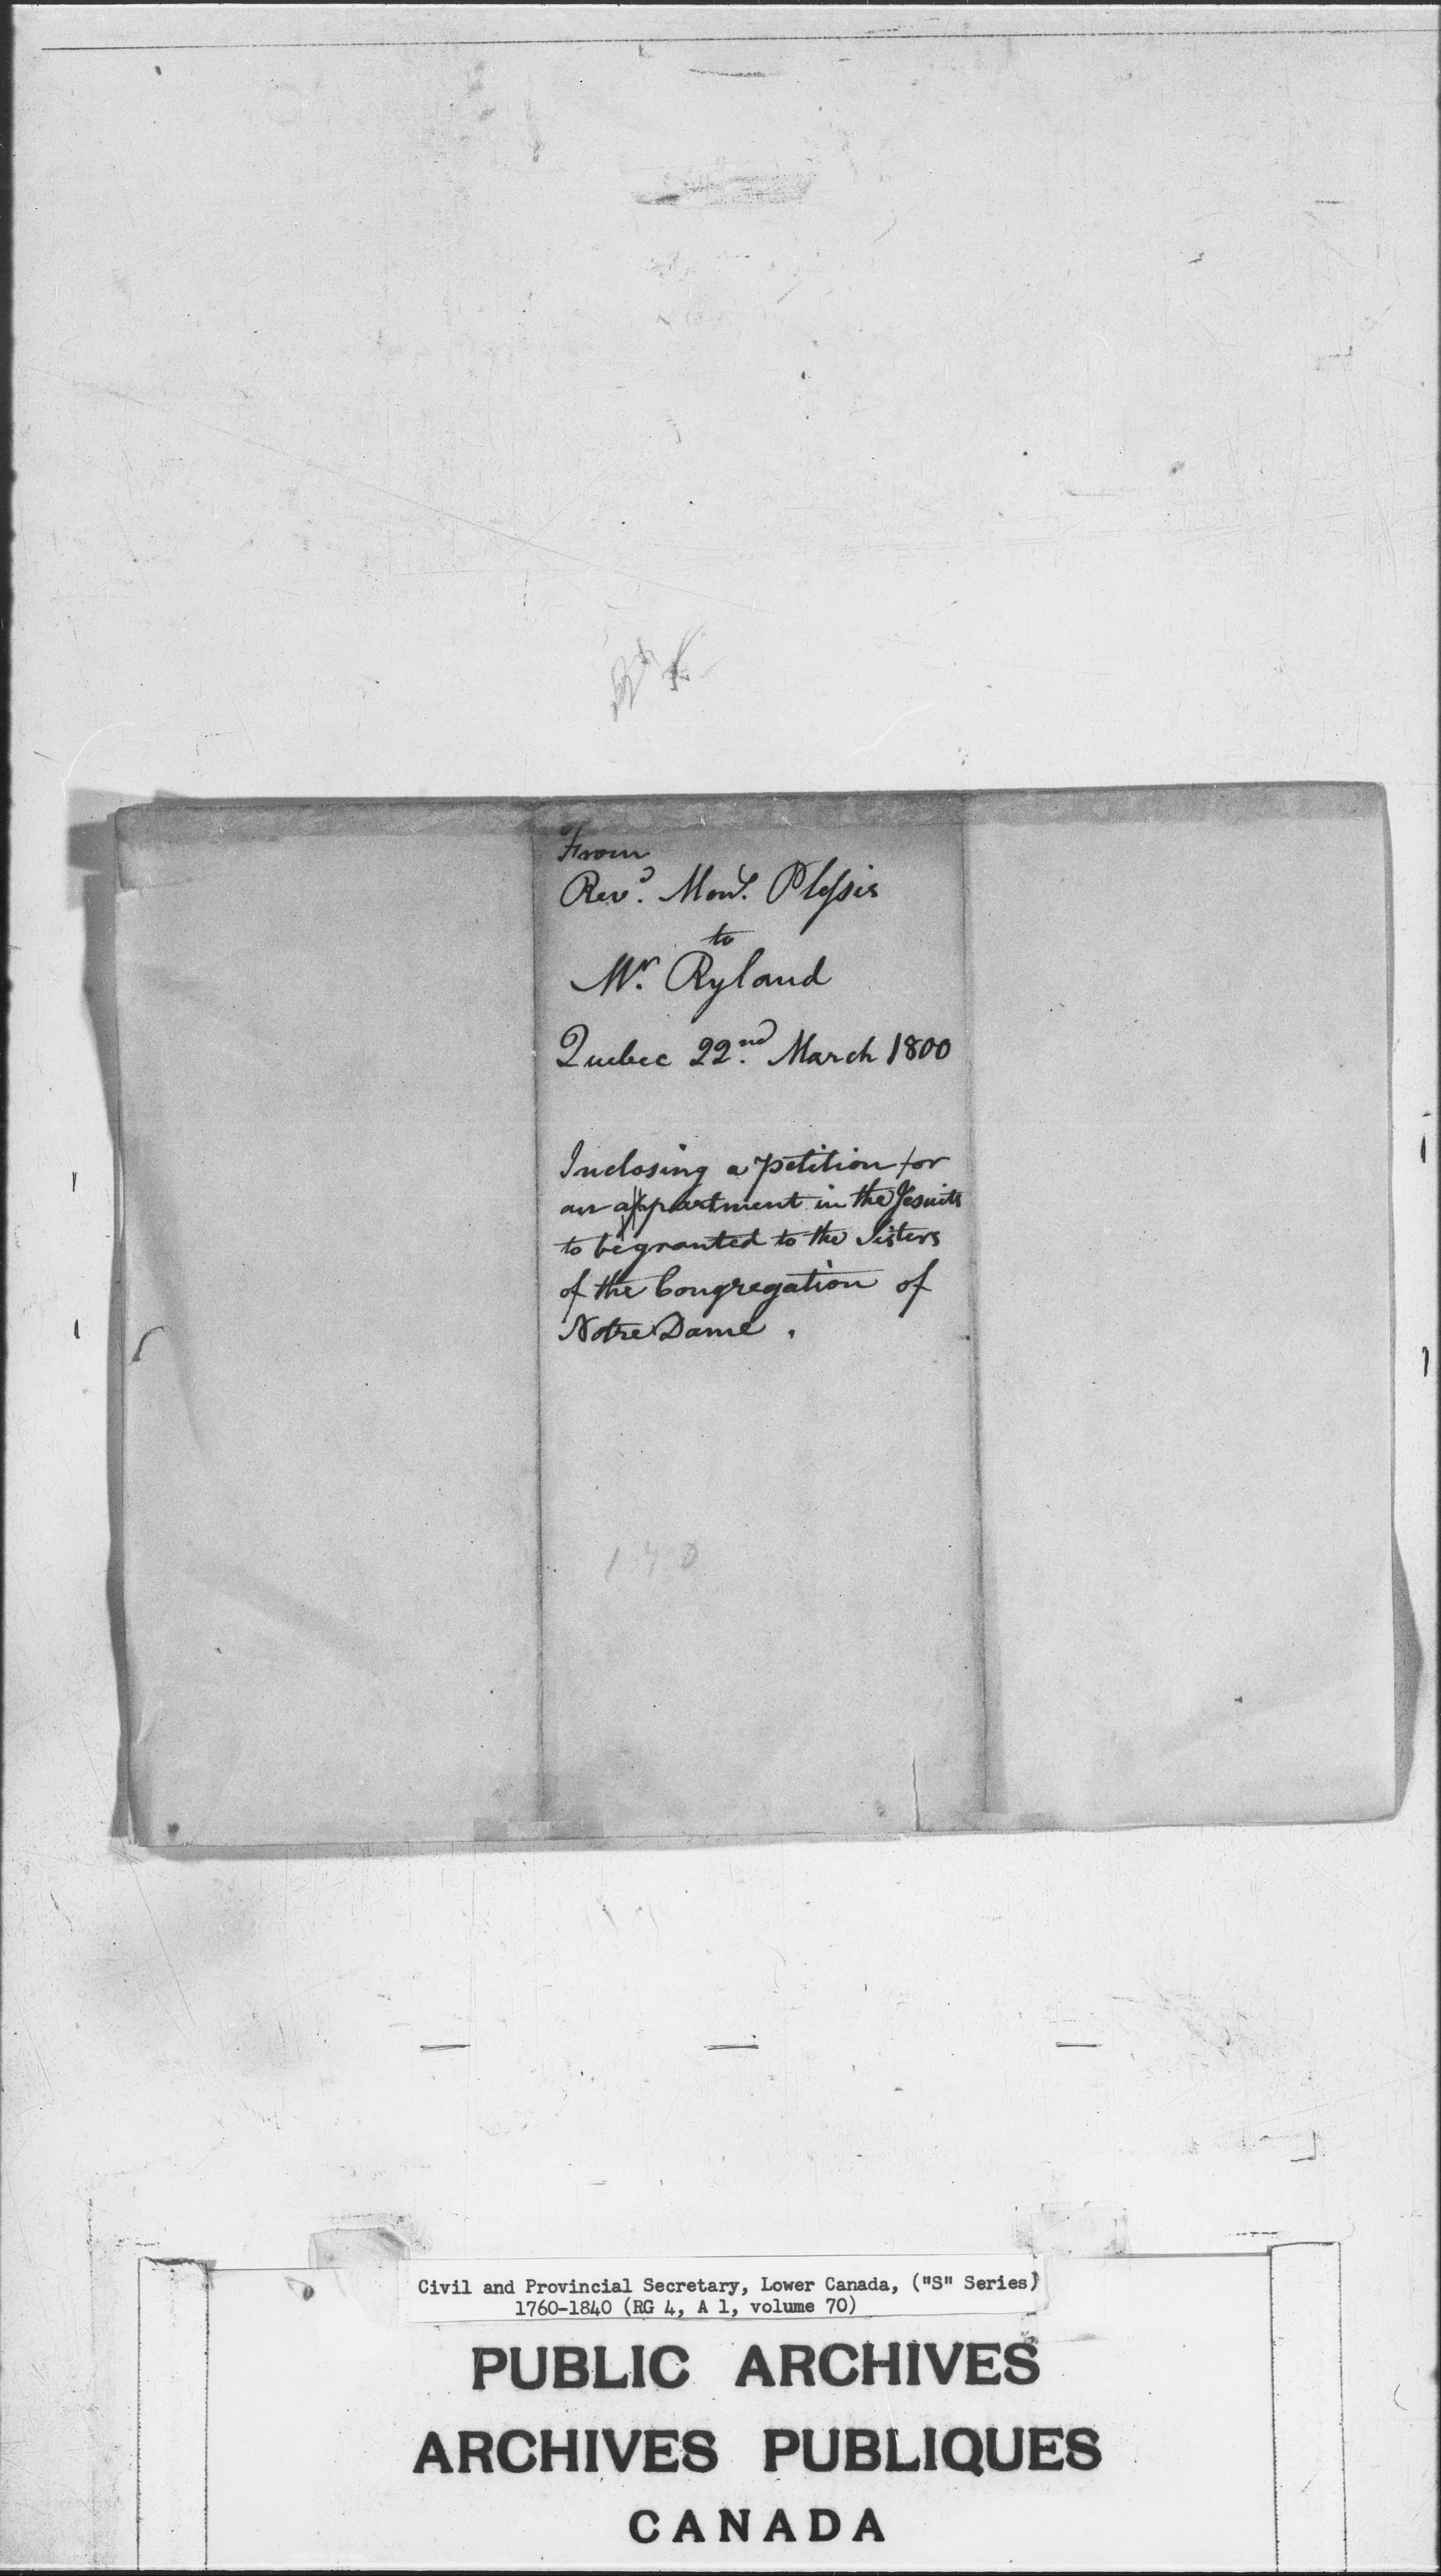 From
Revd. Monr. Plessis
to
Mr. Ryland
Quebec 22nd. March 1800
Inclosing a petition for
an appartment in the Jesuits
to be granted to the Sisters
of the Congregation of
Notre Dame.
Civil and Provincial Secretary, Lower Canada, ("S" Series)
1760-1840 (RG 4, A 1, volume 70)
PUBLIC ARCHIVES
ARCHIVES PUBLIQUES
CANADA